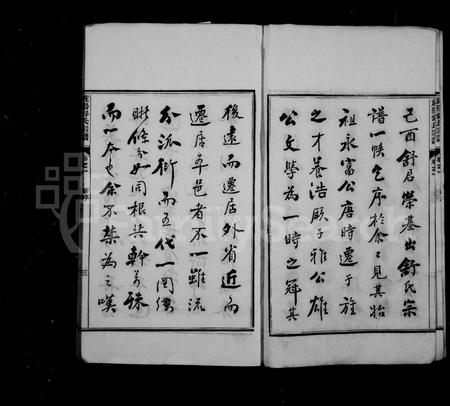 己酉舒君榮基出舒氏宗
譜一帙乞序於余余見其始
祖永富公唐時遷于旌
之才養浩厥子雅公雄
公文學為一時之冠其
後遠而遷居外省近而
遷居本邑者不一雖流
分派衍而五代一圖縷
晰條分如同根共幹萬殊
而一本也余不禁為之嘆
三
FamilySearch